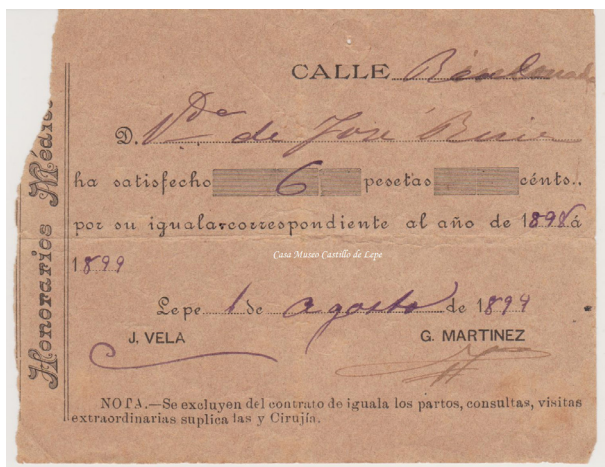 CALLE
D. Vda de José
ha satisfecho 6 pesetas cénts..
por su iguala correspondiente al año de 1898 á
1899
Casa Museo Castillo de Lepe
Lepe 1 de agosto de 1899
J. VELA G. MARTINEZ
NOTA.—Se excluyen del contrato de iguala los partos, consultas, visitas
extraordinarias suplica las y Cirujía.
Honorarios Médico